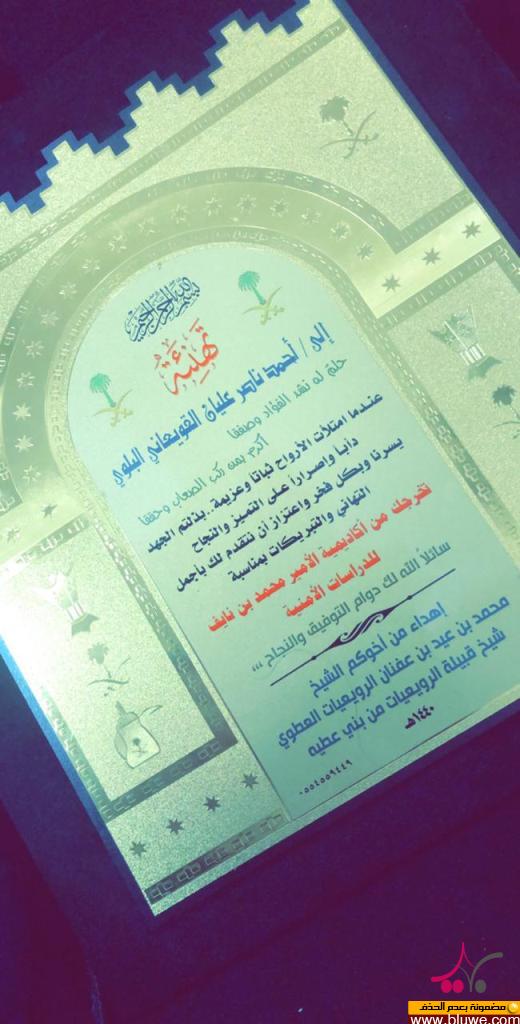 بسم الله الرحمن الرحيم
تهنئة
إلى / أحمد ناصر عليان القويعاني البلوي
حلم له نهد الفؤاد وصفقا
أكرم بمن ركب الصعاب وحققا
عندما امتلأت الأرواح ثباتا وعزيمة .. بذلتم الجهد
دأبا واصراراً على التميز والنجاح
يسرنا وبكل فخر واعتزاز أن نتقدم لك بأجمل
التهاني والتبريكات بمناسبة
تخرجك من أكاديمية الأمير محمد بن نايف
للدراسات الأمنية
سائلاً الله لك دوام التوفيق والنجاح ،،،
إهداء من أخوكم الشيخ
محمد بن عيد بن عفنان الروبعيات العطوي
شيخ قبيلة الروبعيات من بني عطيه
١٤٤٠هـ
٠٥٥٤٥٥٩٤٤٩
مضمونة بعدم الحذف
www.bluwe.com